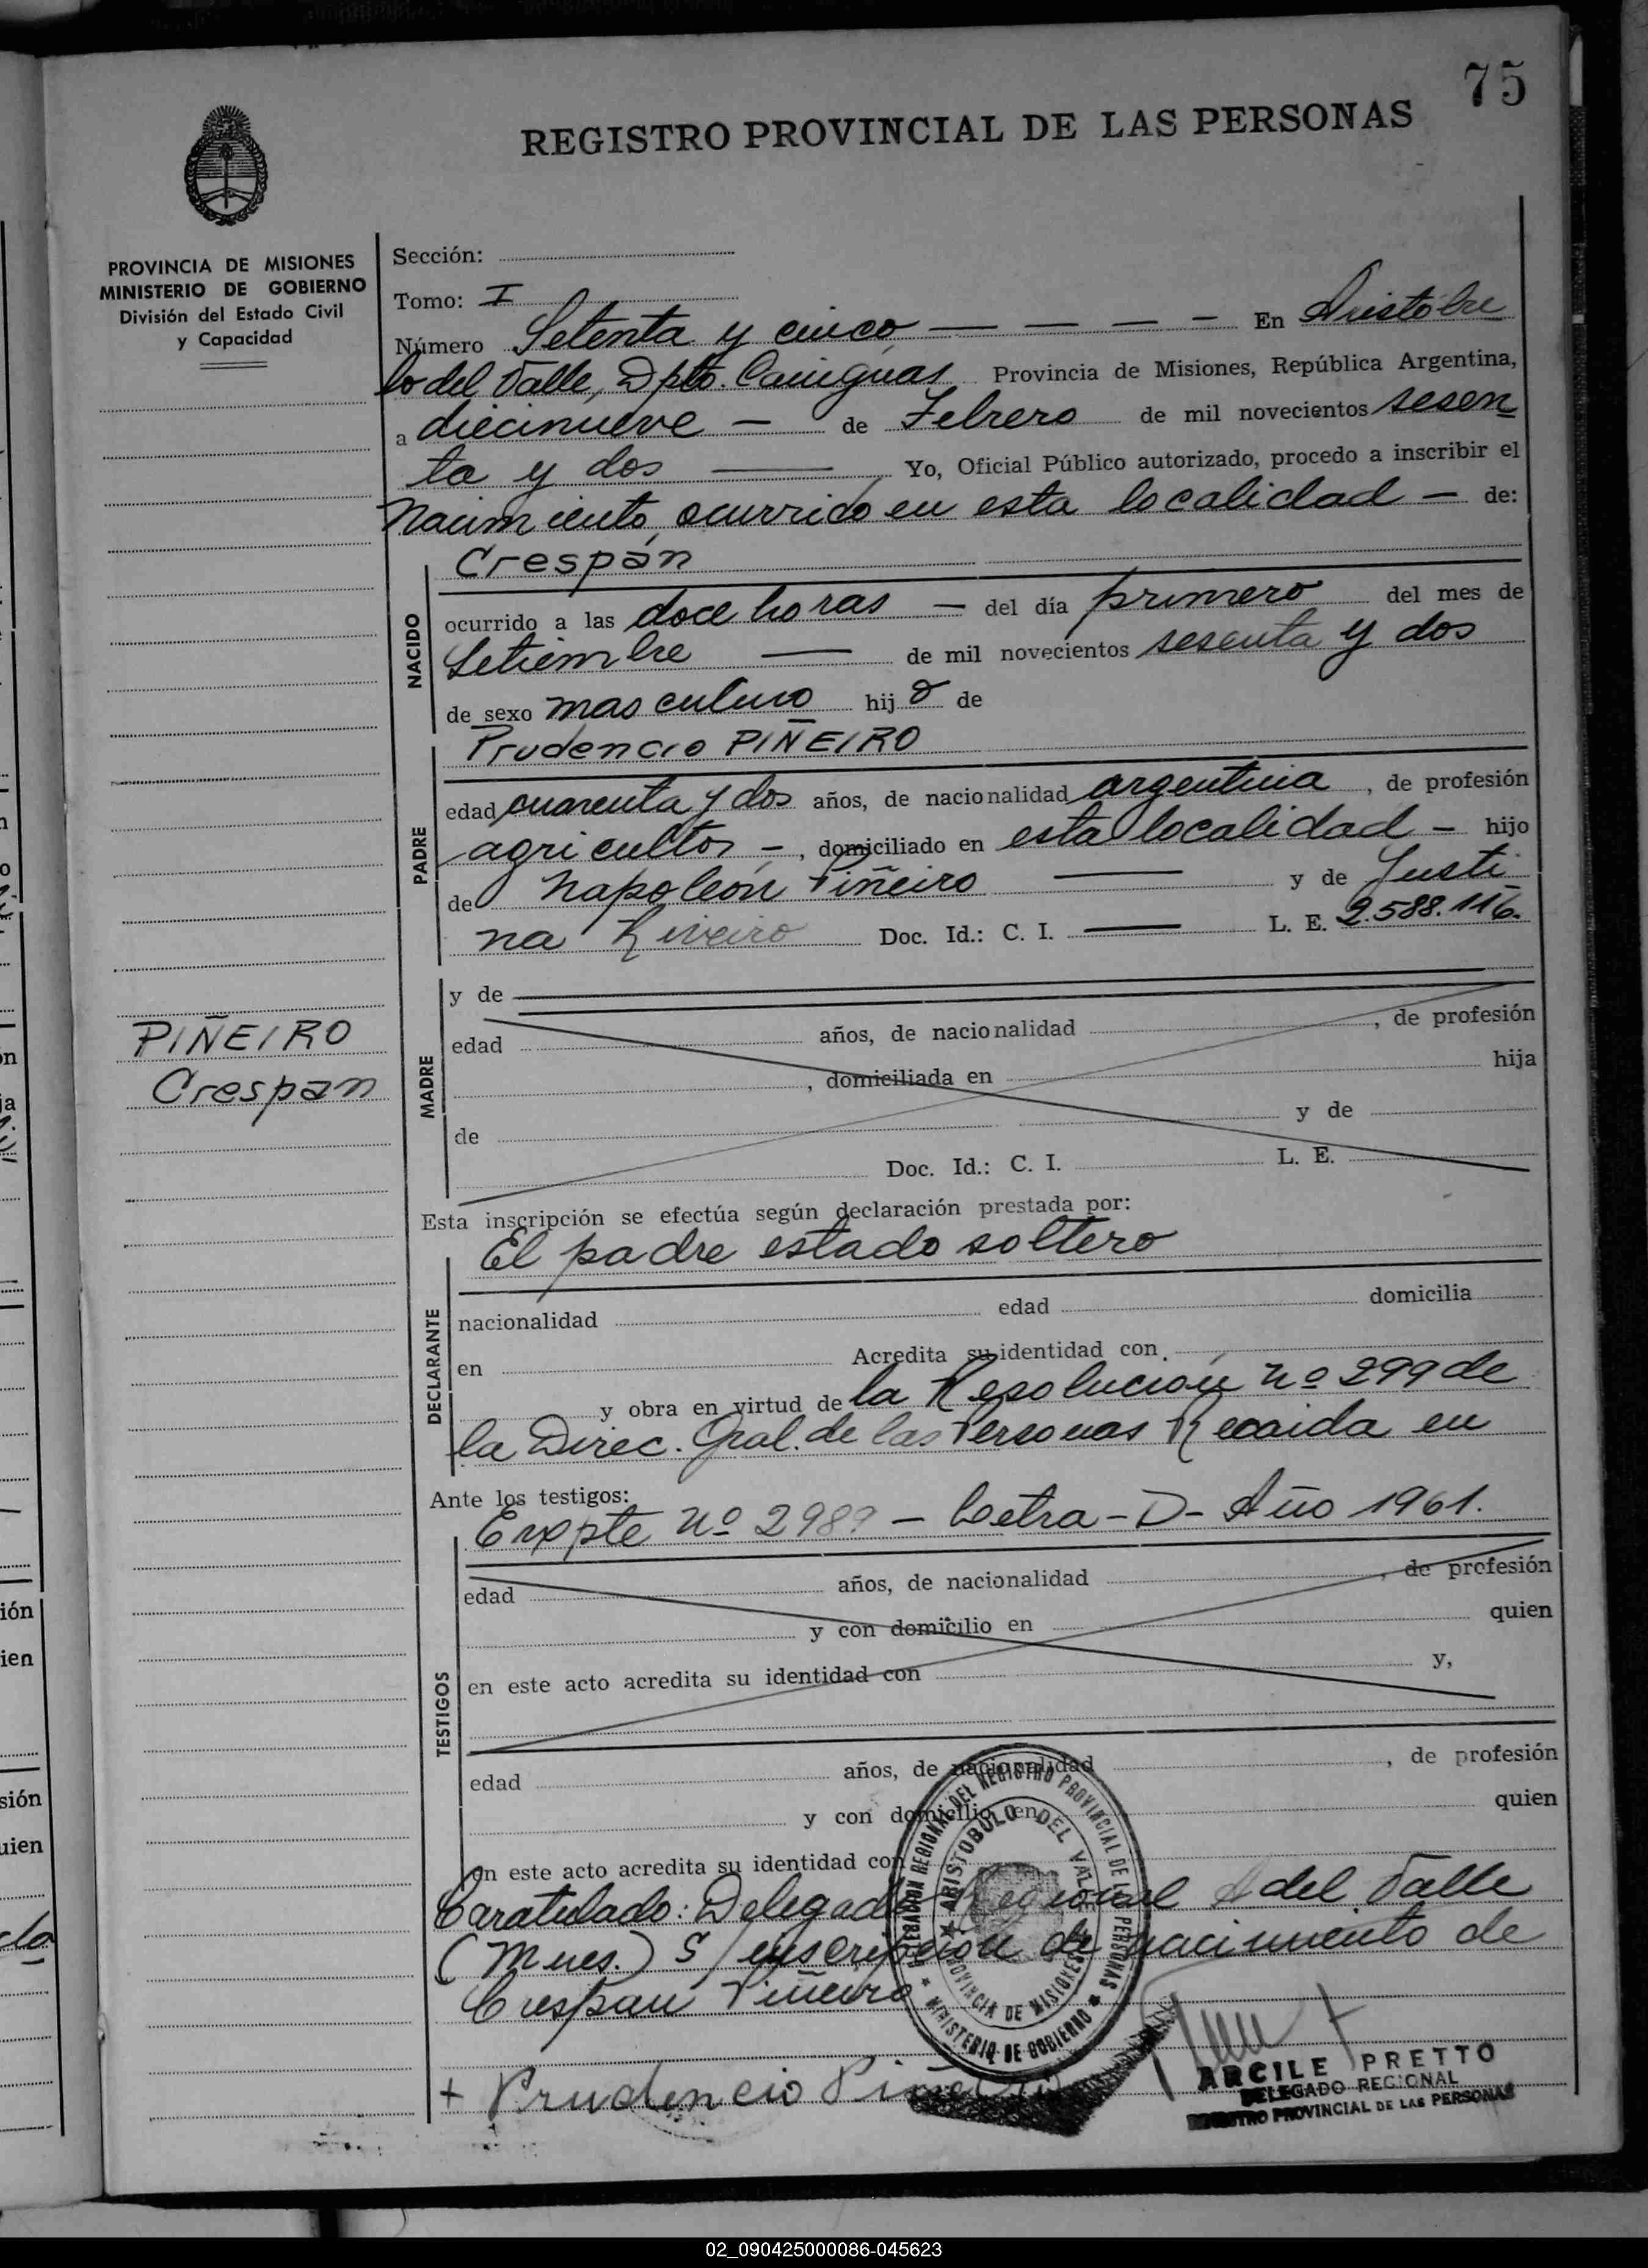 75
REGISTRO PROVINCIAL DE LAS PERSONAS
PROVINCIA DE MISIONES
MINISTERIO DE GOBIERNO
División del Estado Civil
y Capacidad
Sección:
Tomo: I
Número Setenta y cinco — — — — En Aristóbu
lo del Valle, Dpto. Cainguas Provincia de Misiones, República Argentina,
a diecinueve — de Febrero de mil novecientos sesen
ta y dos — Yo, Oficial Público autorizado, procedo a inscribir el
Nacimiento, ocurrido en esta localidad — de:
Crespán
NACIDO
ocurrido a las doce horas — del día primero del mes de
Setiembre — de mil novecientos sesenta y dos
de sexo masculino hij o de
Prudencio PIÑEIRO
PADRE
edad cuarenta y dos años, de nacionalidad argentina, de profesión
agricultor —, domiciliado en esta localidad — hijo
de Napoleón Piñeiro — y de Justi
na Riveiro Doc. Id.: C. I. — L. E. 2.588.116.
MADRE
y de
edad años, de nacionalidad , de profesión
, domiciliada en hija
de y de
Doc. Id.: C. I. L. E.
PIÑEIRO
Crespan
Esta inscripción se efectúa según declaración prestada por:
El padre estado soltero
DECLARANTE
nacionalidad edad domicilia
en Acredita su identidad con
y obra en virtud de la Resolución nº 299 de
la Direc. Gral. de las Personas Recaida en
Ante los testigos:
Expte nº 2989 — Letra - D - Año 1961.
TESTIGOS
edad años, de nacionalidad , de profesión
y con domicilio en quien
en este acto acredita su identidad con y,
edad años, de nacionalidad , de profesión
y con domicilio en quien
en este acto acredita su identidad con
Caratulado: Delegado Regional A del Valle
(Mnes.) S/ inscripción de nacimiento de
Crespan Piñeiro
DELEGACION REGIONAL DEL REGISTRO PROVINCIAL DE LAS PERSONAS
ARISTOBULO DEL VALLE
PROVINCIA DE MISIONES
MINISTERIO DE GOBIERNO
+ Prudencio Piñeiro
ARCILE PRETTO
DELEGADO REGIONAL
REGISTRO PROVINCIAL DE LAS PERSONAS
02_090425000086-045623